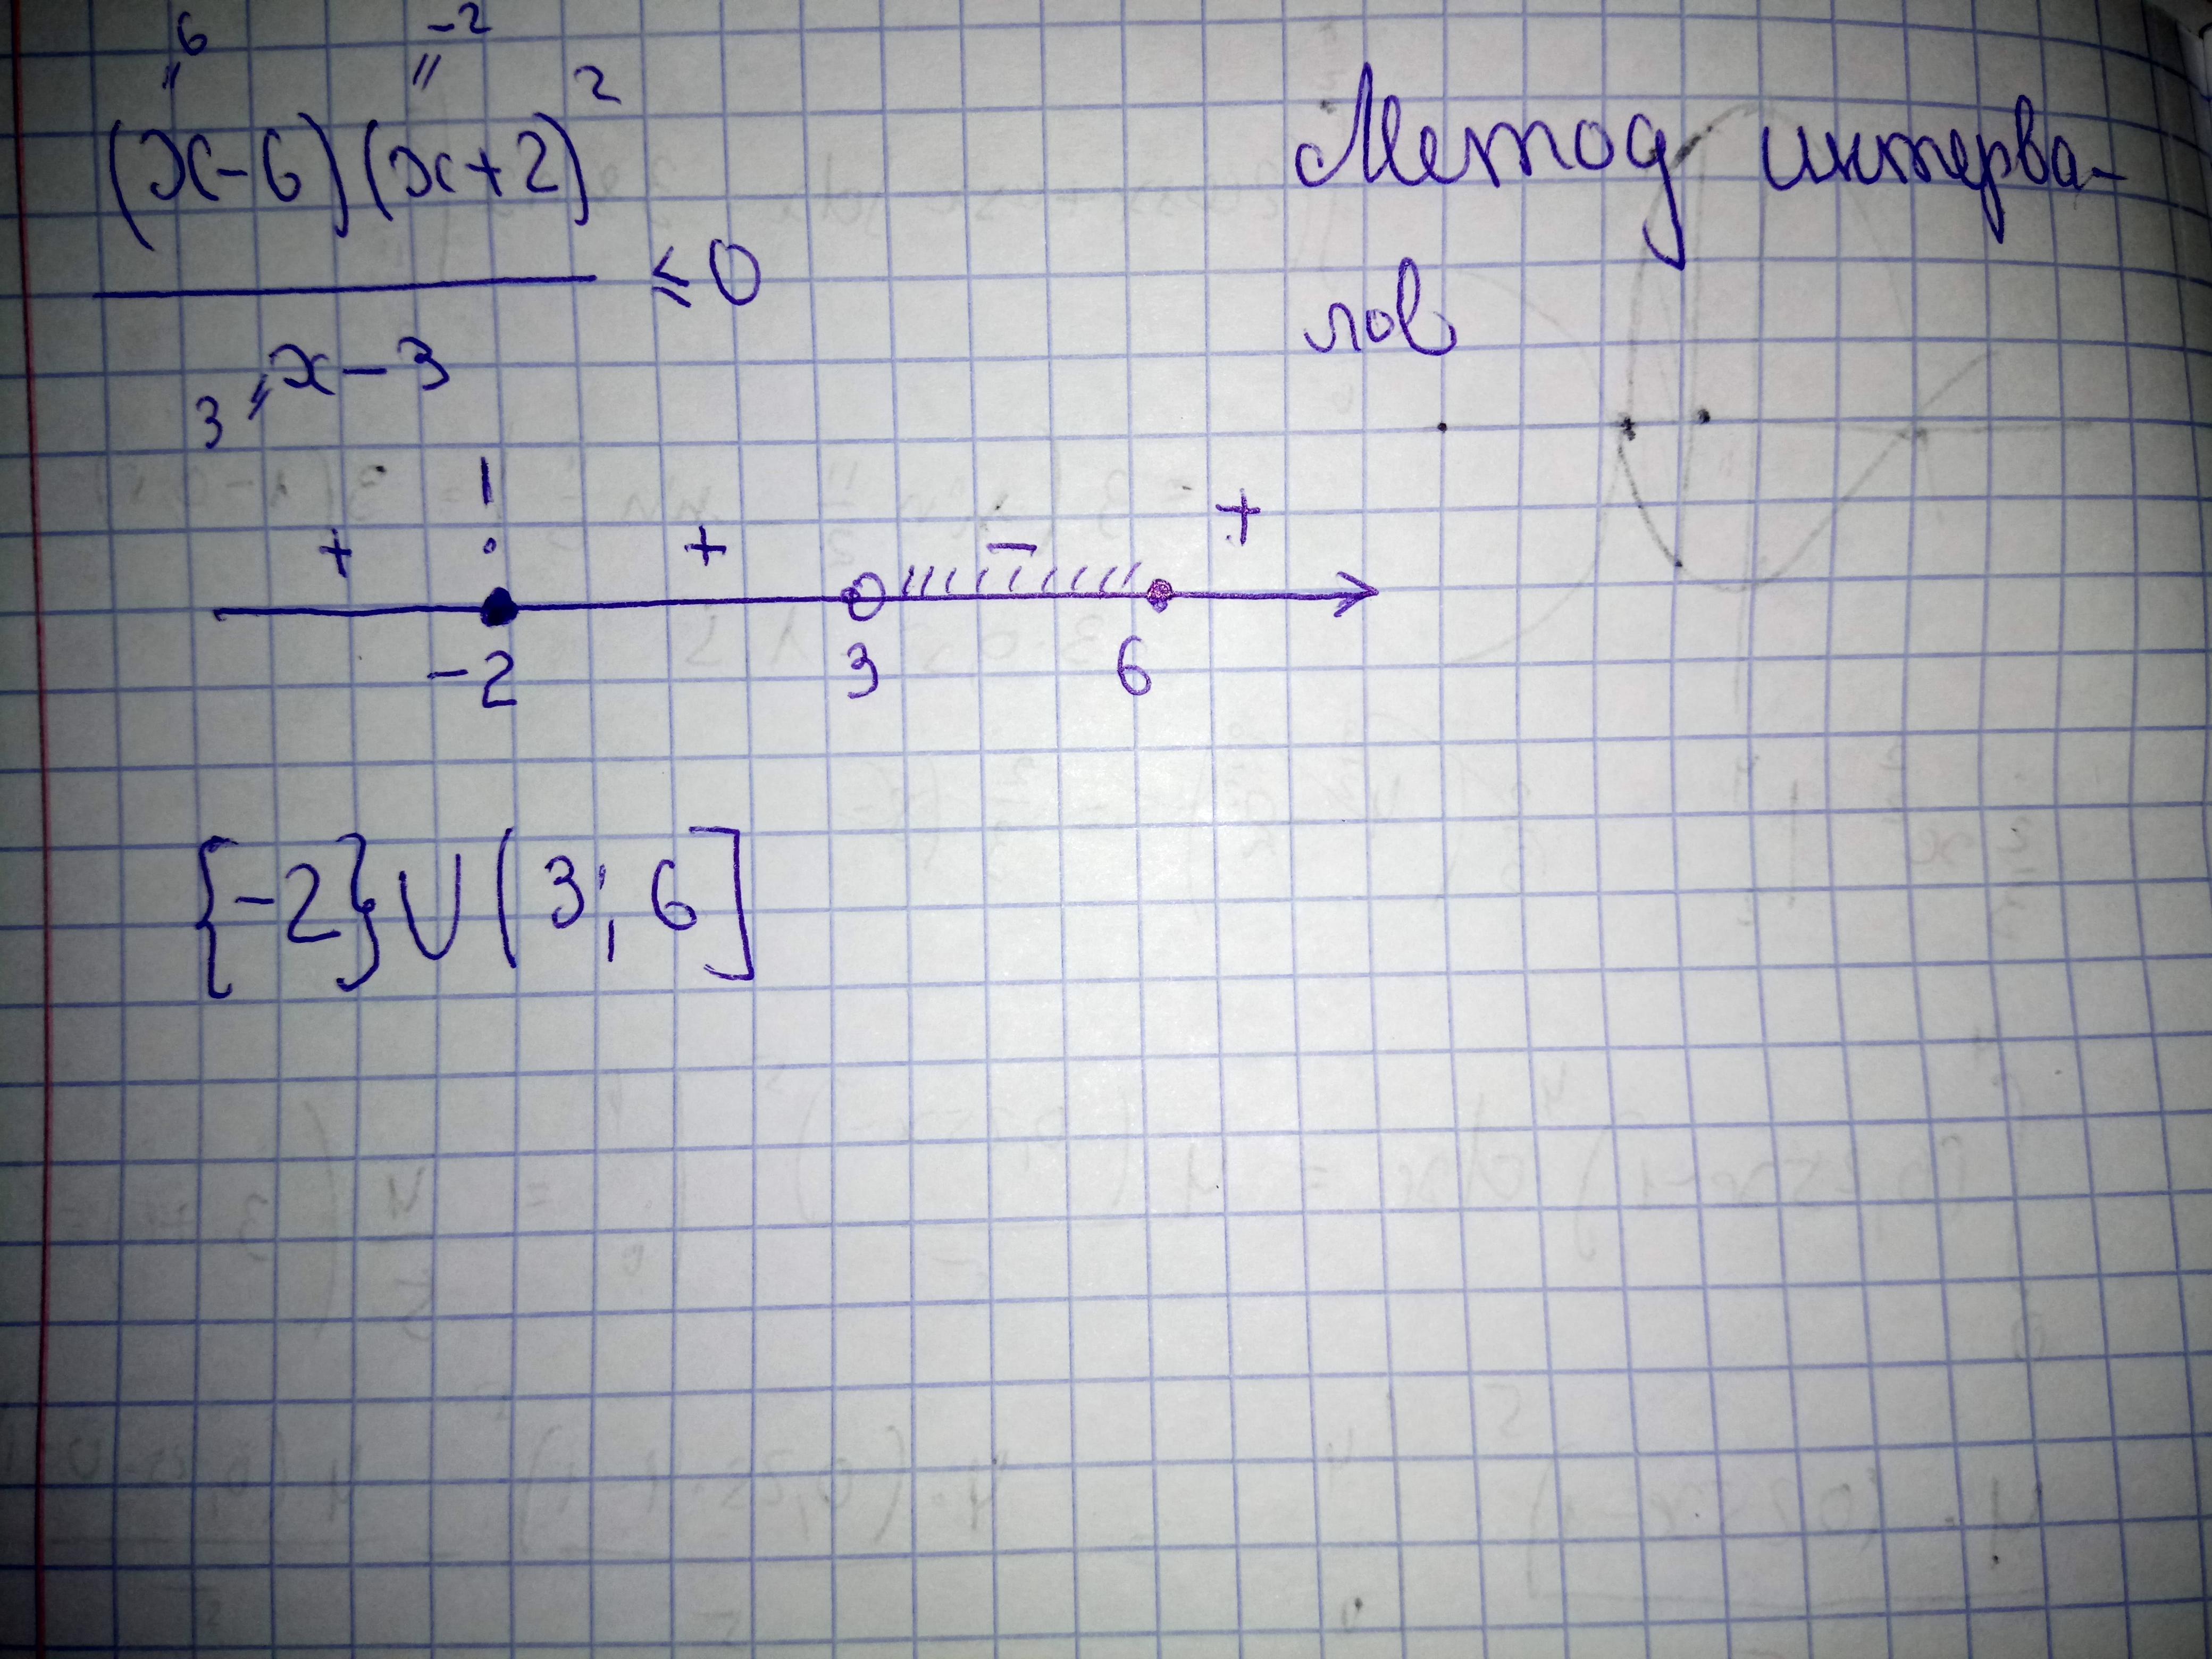 6 -2
" "
(x-6)(x+2)²
≤ 0
x-3
3 "
Метод интерва-
лов
+ ! + - +
-2 3 6
{-2}∪(3;6]